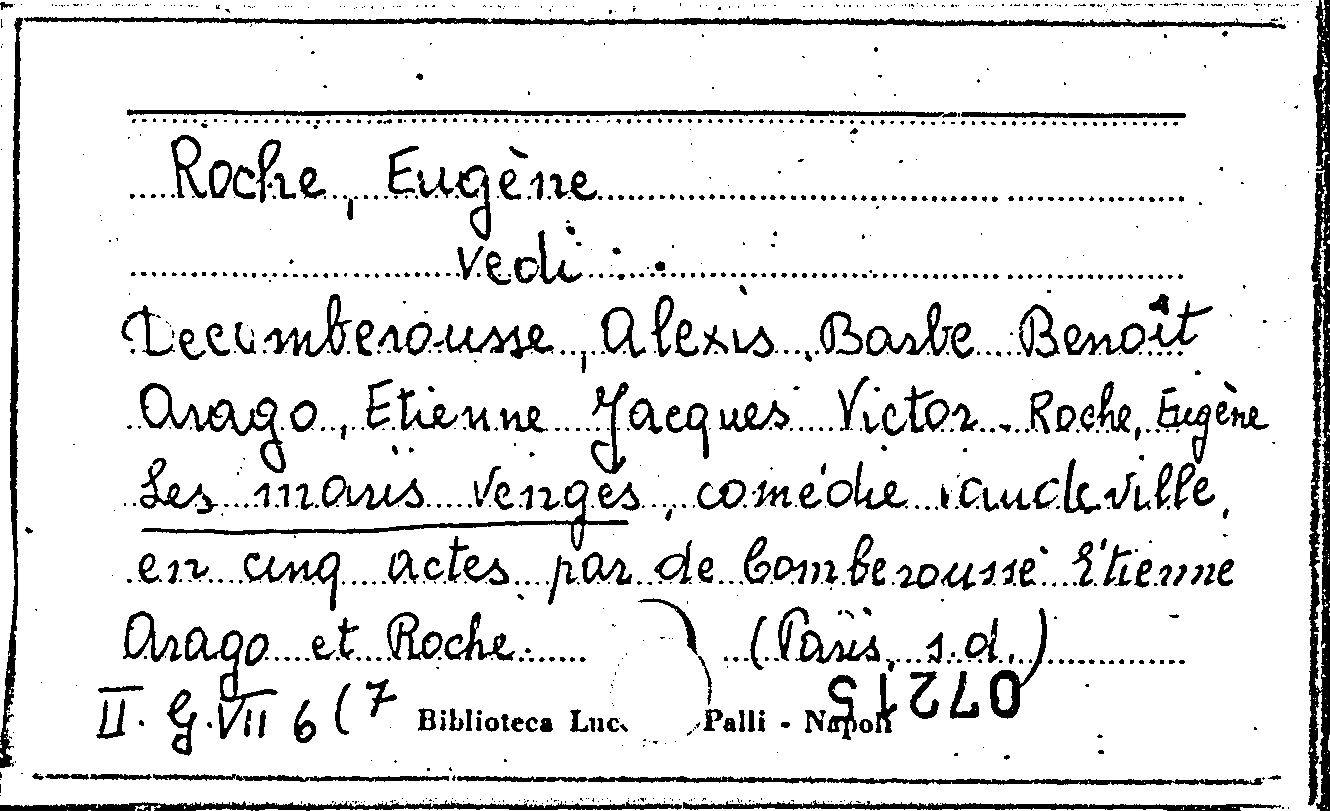 Roche, Eugène
vedi :.
Decumberousse, Alexis, Barbe Benoît
Arago, Etienne Jacques Victor. Roche, Eugène
Les maris vengés, comédie vaudeville,
en cinq actes par de Comberousse Etienne
Arago et Roche. (Paris, s.d.)
II. G. VII 6 (7 Biblioteca Luc Palli - Napoli 07215